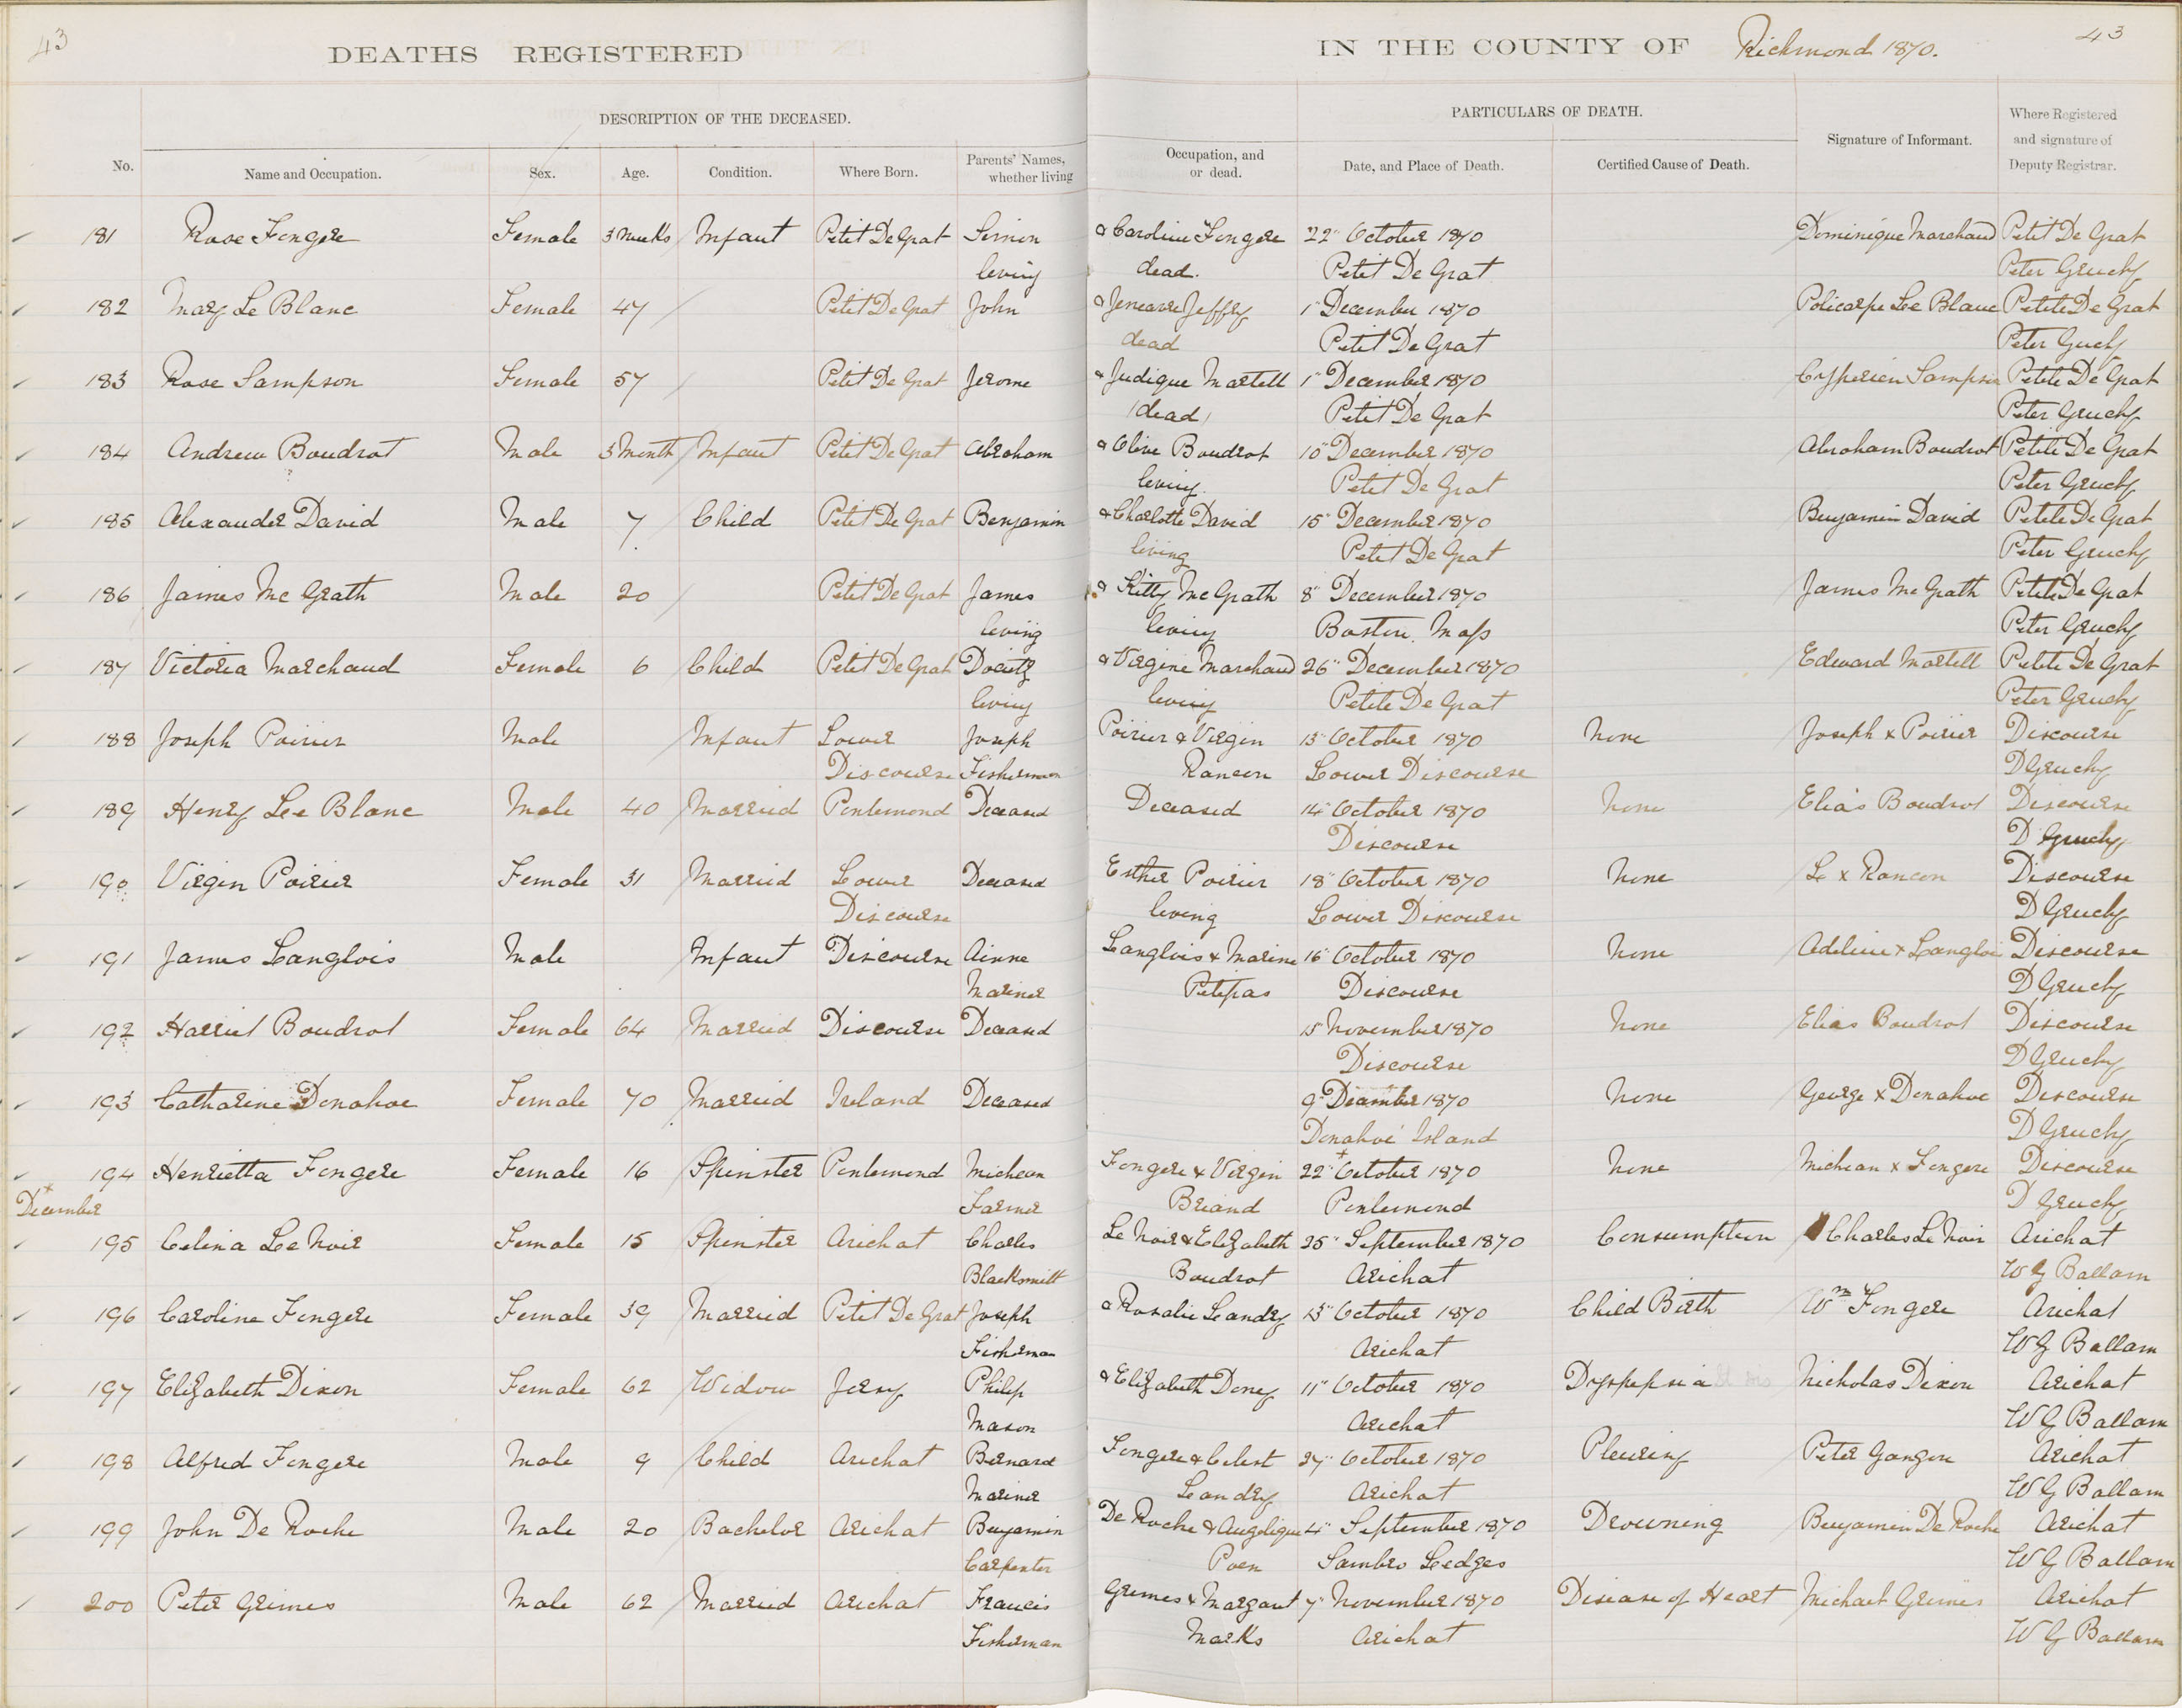 43
DEATHS REGISTERED IN THE COUNTY OF Richmond 1870.
43
DESCRIPTION OF THE DECEASED. PARTICULARS OF DEATH. Where Registered
No. Name and Occupation. Sex. Age. Condition. Where Born. Parents' Names, Occupation, and Date, and Place of Death. Certified Cause of Death. Signature of Informant. and signature of
whether living or dead. Deputy Registrar.
181 Rose Fengere Female 3 Weeks Infant Petit De Grat Simon & Caroline Fengere 22" October 1870 Dominique Marchand Petit De Grat
living dead. Petit De Grat Peter Gruchy
182 Mary Le Blanc Female 47 Petit De Grat John & Jeneavre Jeffry 1" December 1870 Policarpe Lee Blanc Petite De Grat
dead Petit De Grat Peter Guchy
183 Rose Sampson Female 57 Petit De Grat Jerome & Judique Martell 1" December 1870 Sampson Petite De Grat
(dead) Petit De Grat Peter Gruchy
184 Andrew Boudrot Male 3 Month Infant Petit De Grat Abraham & Olive Boudrot 10" December 1870 Abraham Boudrot Petite De Grat
living. Petit De Grat Peter Gruchy
185 Alexander David Male 7 Child Petit De Grat Benjamin & Charlotte David 15" December 1870 Benjamin David Petite De Grat
living Petit De Grat Peter Gruchy
186 James Mc Grath Male 20 Petit De Grat James & Kitty Mc Grath 8" December 1870 James Mc Grath Petite De Grat
living living Boston. Mass Peter Gruchy
187 Victoria Marchand Female 6 Child Petit De Grat & Virgine Marchand 26" December 1870 Edward Martell Petite De Grat
living living Petite De Grat Peter Gruchy
188 Joseph Poirier Male Infant Lower Joseph Poirier & Virgin 13" October 1870 None Joseph x Poirier Discourse
Discourse Fisherman Rancon Lower Discourse D Gruchy
189 Henry Lee Blanc Male 40 Married Ponlemond Deceased Deceased 14" October 1870 None Elias Boudrot Discourse
Discourse D Gruchy
190 Virgin Poirier Female 31 Married Lower Deceased Esther Poirier 18" October 1870 None L x Rancon Discourse
Discourse living Lower Discourse D Gruchy
191 James Langlois Male Infant Discourse Aimne Langlois & Marine 16" October 1870 None Adeline x Langlois Discourse
Mariner Petipas Discourse D Gruchy
192 Harriet Boudrot Female 64 Married Discourse Deceased 15 November 1870 None Elias Boudrot Discourse
Discourse D Gruchy
193 Catharine Donahoe Female 70 Married Ireland Deceased 9" December 1870 None George x Donahoe Discourse
Donahoe Island D Gruchy
194 Henrietta Fengere Female 16 Spinster Ponlemond Michean Fengere & Virgin 22" + October 1870 None Michean x Fengere Discourse
+ December Farmer Briand Ponlemond D Gruchy
195 Celina Le Noir Female 15 Spinster Arichat Charles Le Noir & Elizabeth 25" September 1870 Consumption Charles Le Noir Arichat
Blacksmith Boudrot Arichat W G Ballam
196 Caroline Fengere Female 39 Married Petit De Grat Joseph & Rosalie Leandry 13" October 1870 Child Birth Wm Fengere Arichat
Fisherman Arichat W G Ballam
197 Elizabeth Dixon Female 62 Widow Jersy Philip & Elizabeth Doney 11" October 1870 Dyspepsia Nicholas Dixon Arichat
Mason Arichat W G Ballam
198 Alfred Fengere Male 9 Child Arichat Bernard Fengere & Celest 27" October 1870 Pleurisy Peter Gangon Arichat
Mariner Leandry Arichat W G Ballam
199 John De Roche Male 20 Bachelor Arichat Benjamin De Roche & Angelique 4" September 1870 Drowning Benjamin De Roche Arichat
Carpenter Poen Sambro Ledges W G Ballam
200 Peter Grimes Male 62 Married Arichat Francis Grimes & Margaut 7" November 1870 Disease of Heart Michael Grimes Arichat
Fisherman Marks Arichat W G Ballam